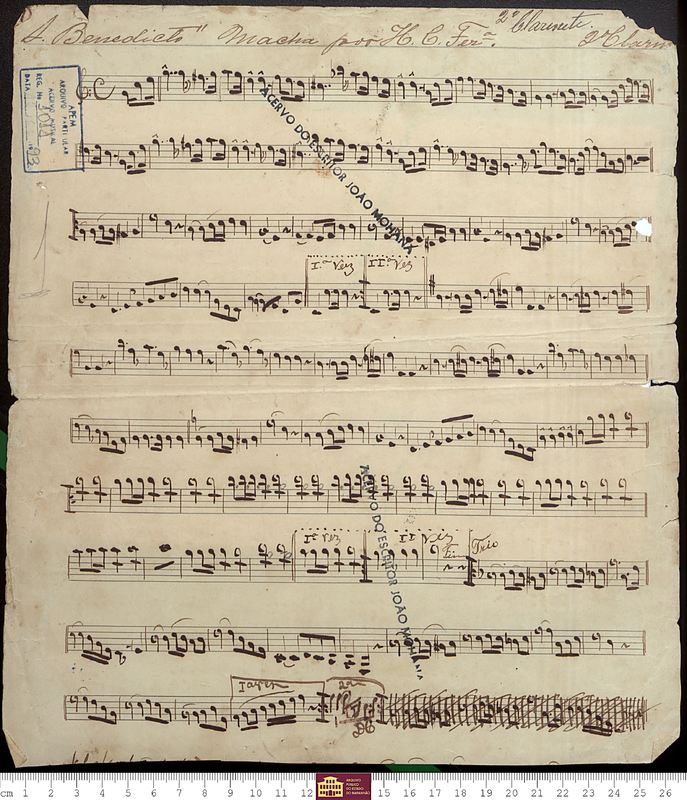 S. Benedicto" Macha por H. C. Fer.ª 2º Clarinete. 2º Clarin
APEM
ARQUIVO PARTICULAR
ACERVO MUSICAL
REG. No 1014
DATA 93
ACERVO DO ESCRITOR JOÃO MOHANA
Iª Vez IIª Vez
ACERVO DO ESCRITOR JOÃO MOHANA
Iª Vez II Vez Fim Trio
1ª vez 2ª
DC
cm 1 2 3 4 5 6 7 8 9 10 11 12 ARQUIVO PÚBLICO DO ESTADO DO MARANHÃO 15 16 17 18 19 20 21 22 23 24 25 26